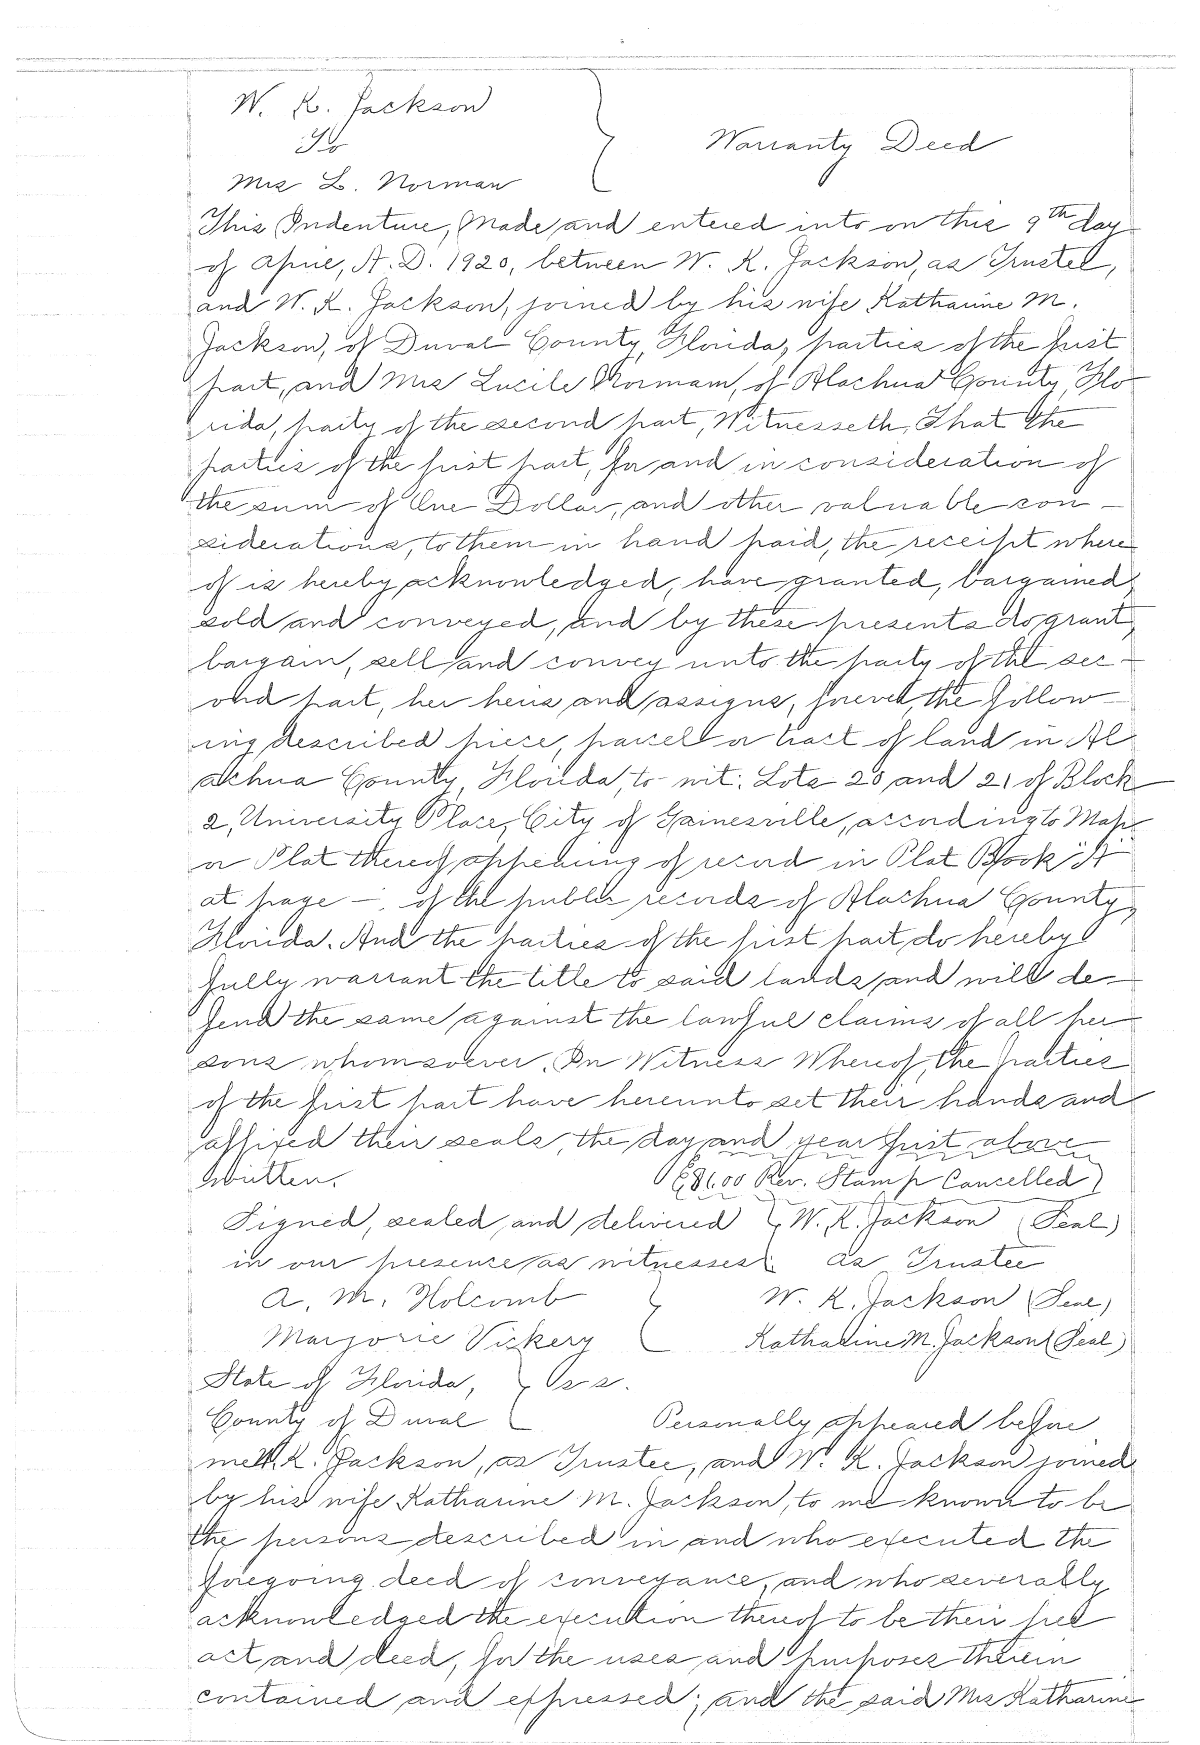 W. K. Jackson
To
Warranty Deed
Mrs L. Norman
This Indenture, Made and entered into on this 9th day
of April, A. D. 1920, between W. K. Jackson, as Trustee,
and W. K. Jackson, joined by his wife Katharine M.
Jackson, of Duval County, Florida, parties of the first
part, and Mrs Lucile Normam, of Alachua County, Flo
rida, party of the second part, Witnesseth, That the
parties of the first part, for and in consideration of
the sum of One Dollar, and other valuable con-
siderations, to them in hand paid, the receipt where
of is hereby acknowledged, have granted, bargained,
sold and conveyed, and by these presents do grant,
bargain, sell and convey unto the party of the sec-
ond part, her heirs and assigns, forever, the follow-
ing described piece, parcel or tract of land in Al
achua County, Florida, to wit: Lots 20 and 21 of Block
2, University Place, City of Gainesville, according to Map
or Plat thereof appearing of record in Plat Book "A"
at page -, of the public records of Alachua County,
Florida. And the parties of the first part do hereby
fully warrant the title to said lands, and will de-
fend the same against the lawful claims of all per
sons whomsoever. In Witness Whereof, the parties
of the first part have hereunto set their hands and
affixed their seals, the day and year first above
written. ($1.00 Rev. Stamp Cancelled)
Signed, sealed, and delivered W. K. Jackson (Seal)
in our presence as witnesses: as Trustee
A. M. Holcomb W. K. Jackson (Seal)
Marjorie Vickery Katharine M. Jackson (Seal)
State of Florida, ss.
County of Duval Personally appeared before
me W. K. Jackson, as Trustee, and W. K. Jackson joined
by his wife Katharine M. Jackson, to me known to be
the persons described in and who executed the
foregoing deed of conveyance, and who severally
acknowledged the execution thereof to be their free
act and deed, for the uses and purposes therein
contained and expressed; and the said Mrs Katharine